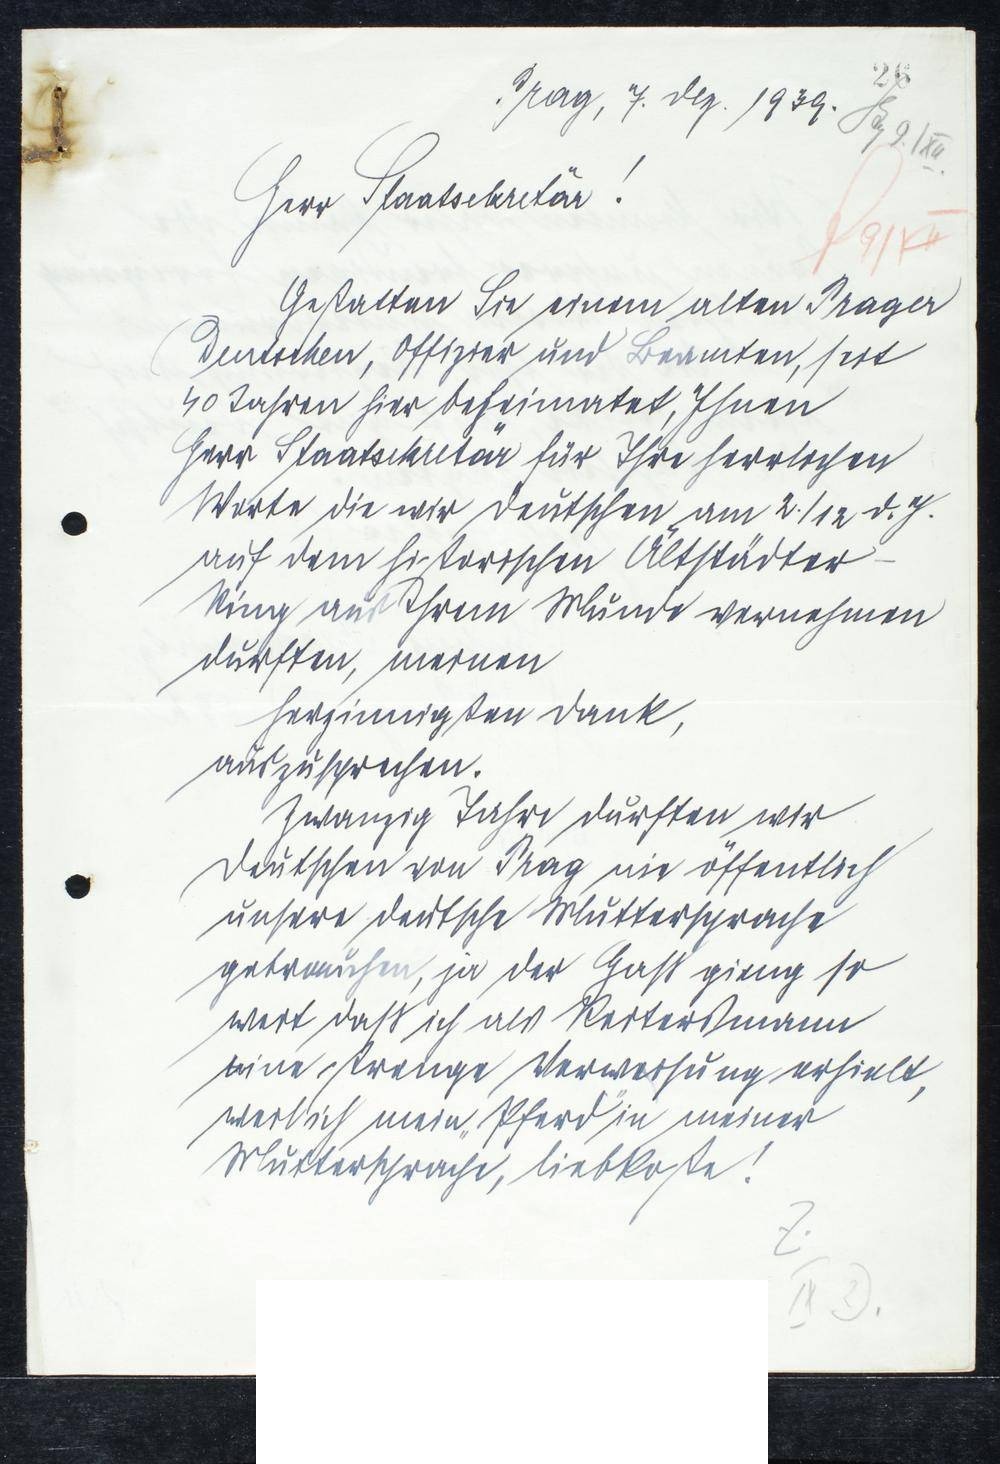 26
Prag, 7. Dez. 1939.
9./XII.
9/XII
Herr Staatsekretär!
Gestatten Sie einem alten Prager
Deutschen, Offizier und Beamten, seit
40 Jahren hier beheimatet, Ihnen
Herr Staatsekretär für Ihre herrlichen
Worte die wir Deutschen am 2./12 d. J.
auf dem historischen Altstädter-
Ring aus Ihrem Munde vernehmen
durften, meinen
herzinnigsten Dank,
auszusprechen.
Zwanzig Jahre durften wir
Deutschen von Prag nie öffentlich
unsere deutsche Muttersprache
gebrauchen, ja der Haß gieng so
weit daß ich als Reitersmann
eine strenge Verweisung erhielt,
weil ich mein "Pferd" in meiner
Muttersprache, liebkoste!
Z.